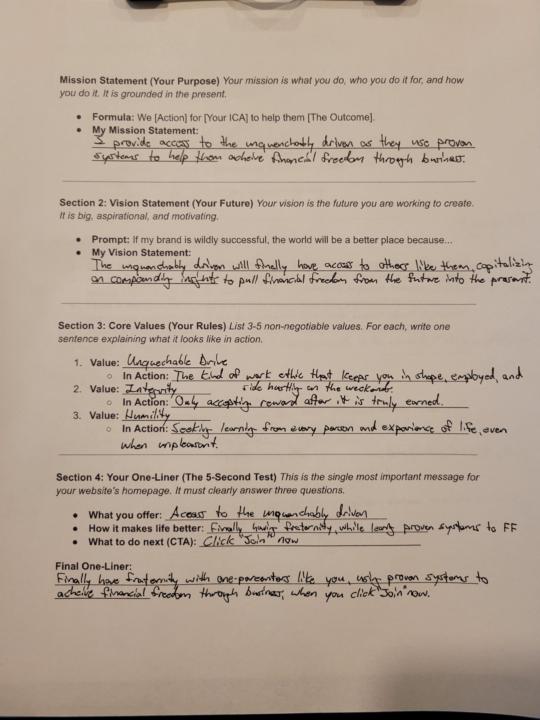 Mission Statement (Your Purpose) Your mission is what you do, who you do it for, and how
you do it. It is grounded in the present.
• Formula: We [Action] for [Your ICA] to help them [The Outcome].
• My Mission Statement:
I provide access to the unquenchably driven as they use proven
systems to help them acheive financial freedom through business.
Section 2: Vision Statement (Your Future) Your vision is the future you are working to create.
It is big, aspirational, and motivating.
• Prompt: If my brand is wildly successful, the world will be a better place because...
• My Vision Statement:
The unquenchably driven will finally have access to others like them, capitalizing
on compounding insights to pull financial freedom from the future into the present.
Section 3: Core Values (Your Rules) List 3-5 non-negotiable values. For each, write one
sentence explaining what it looks like in action.
1. Value: Unquechable Drive
○ In Action: The kind of work ethic that keeps you in shape, employed, and
side hustling on the weekends.
2. Value: Integrity
○ In Action: Only accepting reward after it is truly earned.
3. Value: Humility
○ In Action: Seeking learning from every person and experience of life, even
when unpleasant.
Section 4: Your One-Liner (The 5-Second Test) This is the single most important message for
your website's homepage. It must clearly answer three questions.
• What you offer: Access to the unquenchably driven
• How it makes life better: Finally having fraternity, while proven systems to FF
• What to do next (CTA): Click "Join" now
Final One-Liner:
Finally have fraternity with one-percenters like you, using proven systems to
acheive financial freedom through business, when you click "Join" now.